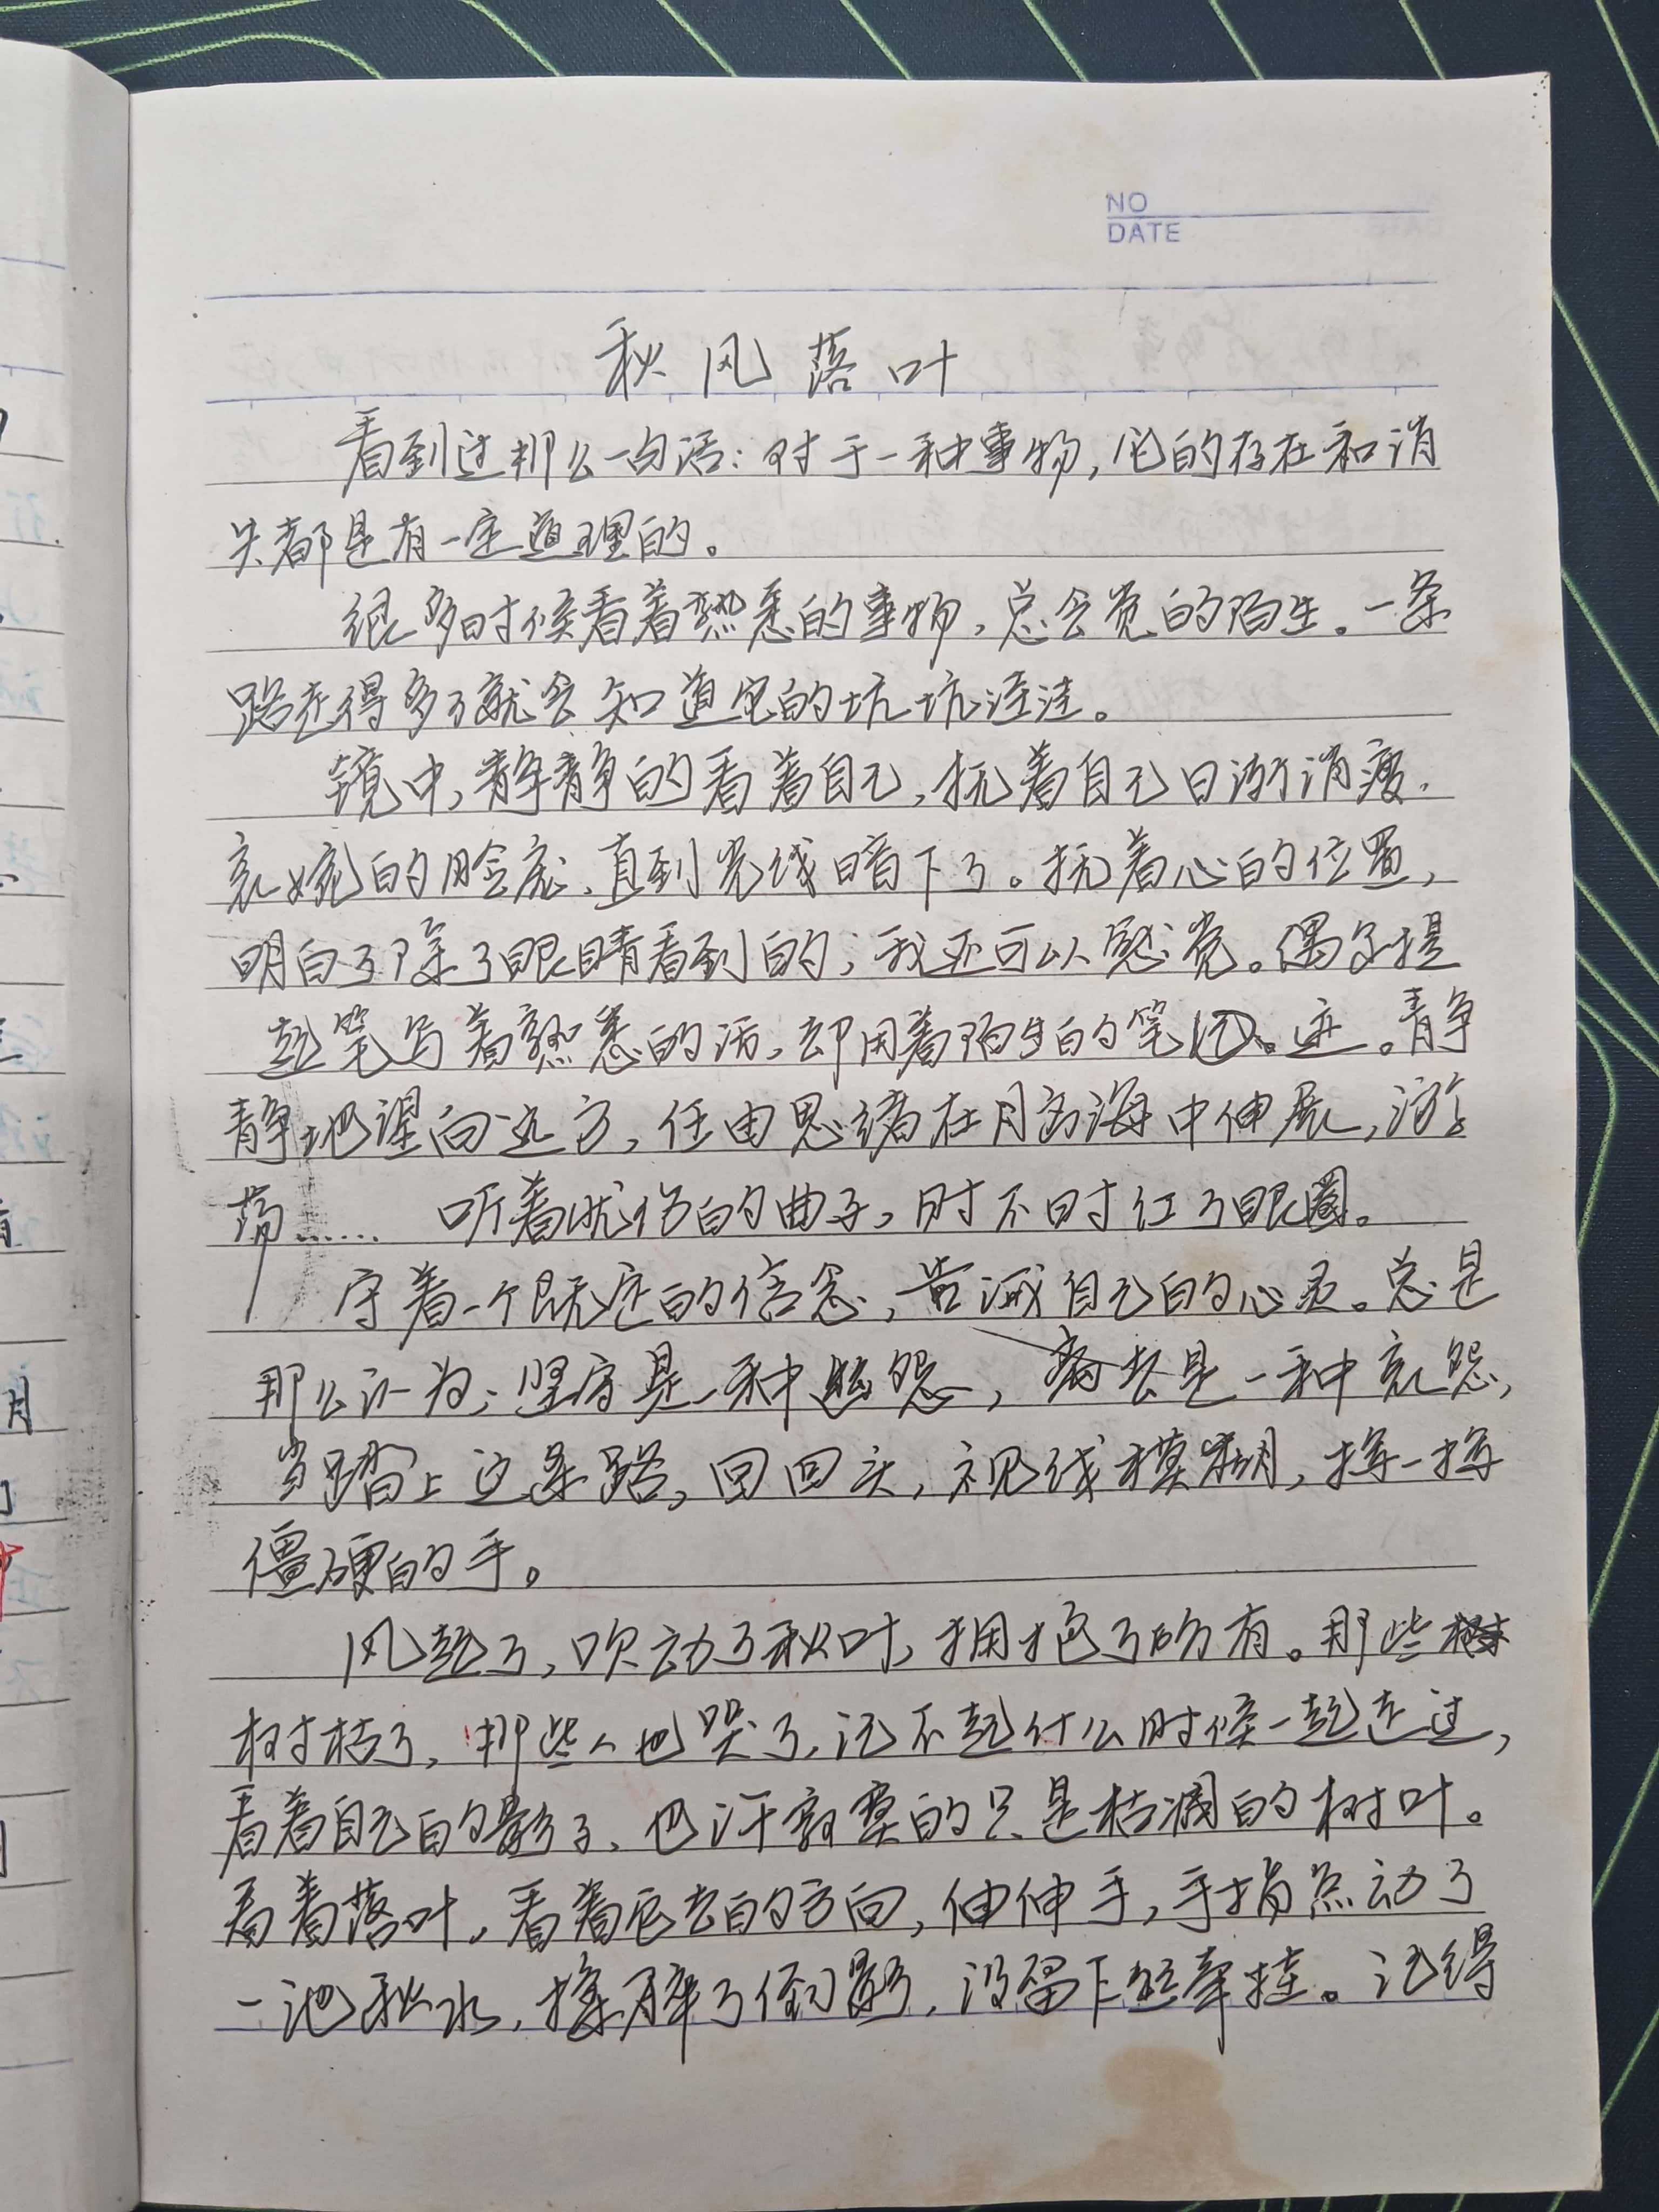 NO
DATE
秋风落叶
看到过那么一句话：对于一种事物，它的存在和消
失都是有一定道理的。
很多时候看着熟悉的事物，总会觉的陌生。一条
路走得多了就会知道它的坑坑洼洼。
镜中，静静的看着自己，抚着自己日渐消瘦.
哀婉的脸庞、直到光线暗下了。抚着心的位置，
明白了除了眼睛看到的；我还可以感觉。偶尔提
起笔写着熟悉的话，却用着陌生的笔迹。静
静地望向远方，任由思绪在脑海中伸展，游
荡…… 听着忧伤的曲子，时不时红了眼圈。
守着一个既定的信念，告诫自己的心灵。总是
那么认为；坚守是一种幽怨，离去是一种哀怨，
当踏上这条路，回回头，视线模糊，挥一挥
僵硬的手。
风起了，吹动了秋叶，拥抱了所有。那些
树枯了，那些人也哭了，记不起什么时候一起走过，
看着自己的影子、也许需要的只是枯凋的树叶。
看着落叶，看着它去的方向，伸伸手，手指点动了
一池秋水，揉碎了倒影，没留下些牵挂。记得